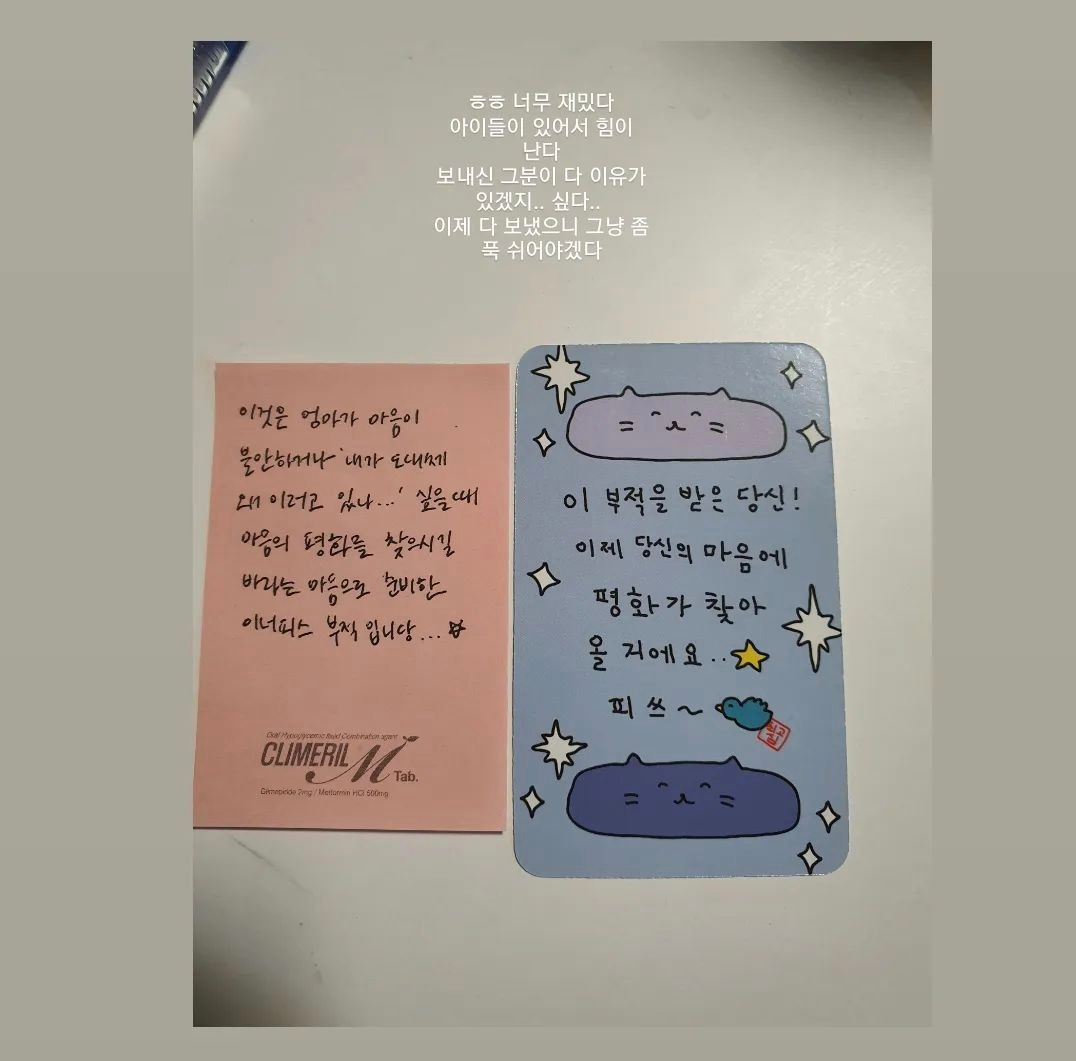 ㅎㅎ 너무 재밌다
아이들이 있어서 힘이
난다
보내신 그분이 다 이유가
있겠지.. 싶다..
이제 다 보냈으니 그냥 좀
푹 쉬어야겠다
이것은 엄마가 마음이
불안하거나 '내가 도대체
왜 이러고 있나...' 싶을때
마음의 평화를 찾으시길
바라는 마음으로 준비한
이너피스 부적입니당...
Oral Hypoglycemic fixed Combination agent
CLIMERIL M Tab.
Glimepiride 2mg / Metformin HCl 500mg
이 부적을 받은 당신!
이제 당신의 마음에
평화가 찾아
올 거에요..
피쓰~